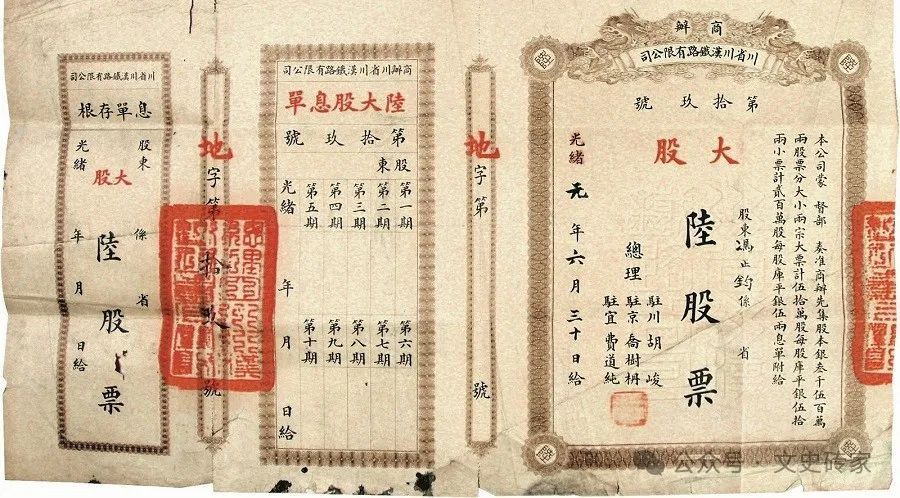 商辦
川省川漢鐵路有限公司
第拾玖號
大股
本公司蒙 督部 奏准商辦先集股本銀叁千伍百萬
兩股票分大小兩宗大票計伍拾萬股每股庫平銀伍拾
兩小票計貳百萬股每股庫平銀伍兩息單附給
股東馮正鈞係 省
陸股票
總理
駐川胡峻
駐京喬樹枏
駐宜費道純
光緒 元年六月三十日給
地字第 號
商辦川省川漢鐵路有限公司
陸大股息單
第拾玖號
股東
第一期 第六期
第二期 第七期
第三期 第八期
第四期 第九期
第五期 第十期
光緒 年 月 日給
地字第拾玖號
川省川漢鐵路有限公司
息單存根
股東 係 省
大股
陸股票
光緒 年 月 日給
公众号·文史砖家